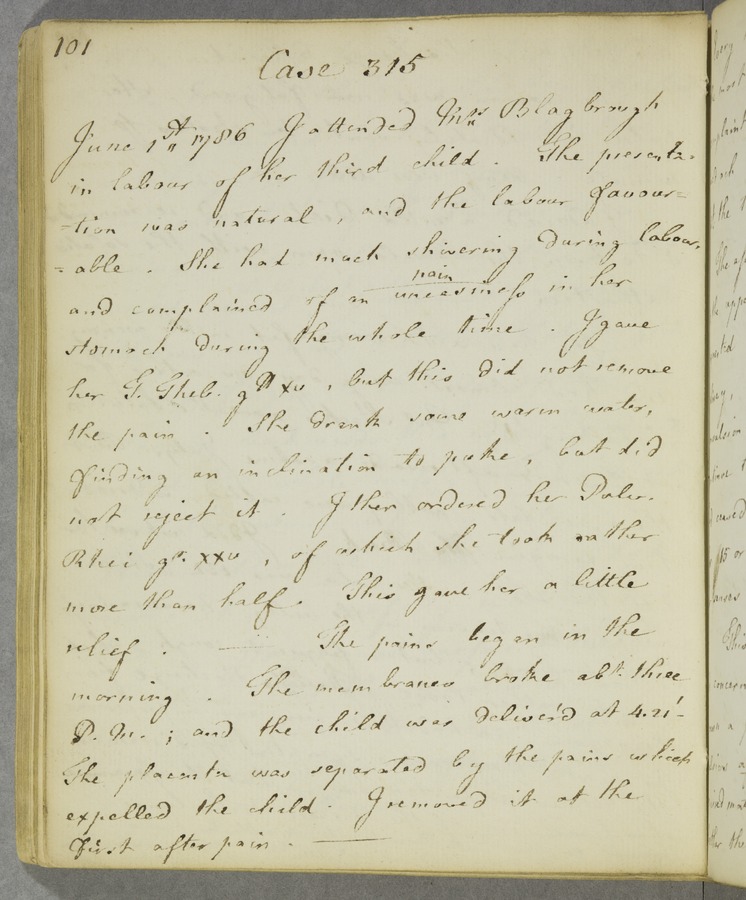 101
Case 315
June 1st 1786 I attended Mrs Blagbrough
in labour of her third child. The presenta-
-tion was natural, and the labour favour=
=able. She had much shivering during labour,
pain
and complained of an uneasiness in her
stomach during the whole time. I gave
her T. Theb. gtt xv, but this did not remove
the pain. She drank some warm water,
finding an inclination to puke, but did
not reject it. I then ordered her Pulv.
Rhei gr. xxv, of which she took rather
more than half. This gave her a little
relief. — The pains began in the
morning. The membranes broke abt. three
P.M.; and the child was deliver'd at 4.21'-
The placenta was separated by the pains which
expelled the child. I removed it at the
first after pain. —